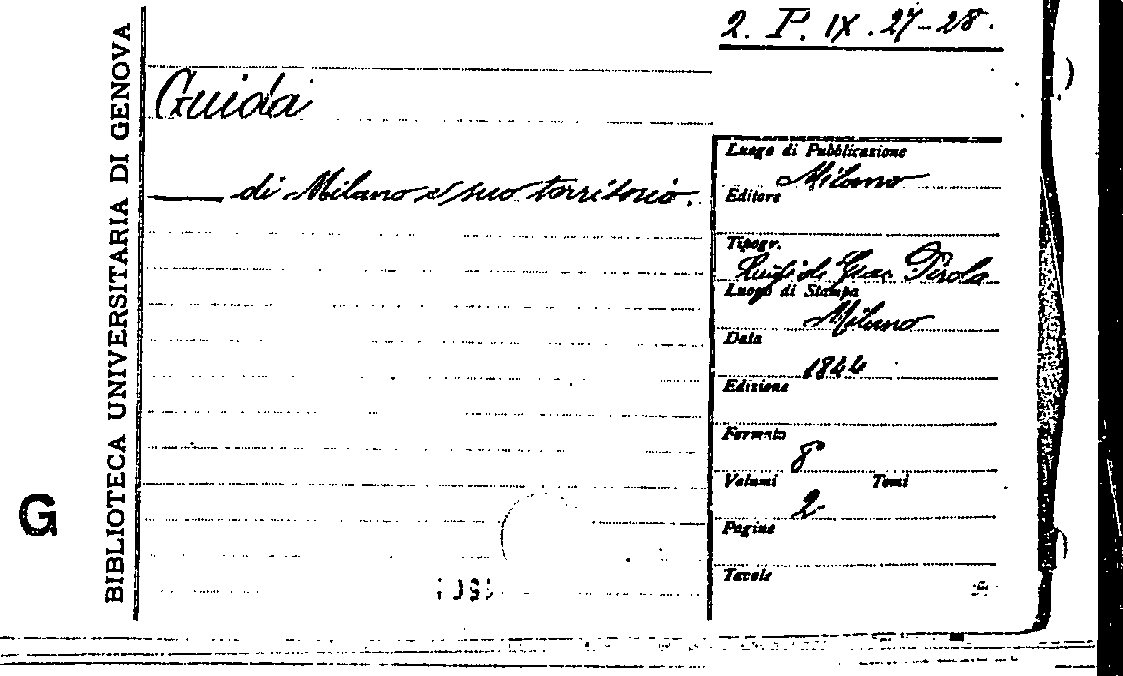 2. P. IX. 27-28.
Guida
di Milano e suo territorio.
BIBLIOTECA UNIVERSITARIA DI GENOVA
G
Luogo di Pubblicazione
Milano
Editore
Tipogr.
Luigi di Giac Pirola
Luogo di Stampa
Milano
Data
1844
Edizione
Formato
8
Volumi Tomi
2
Pagine
Tavole